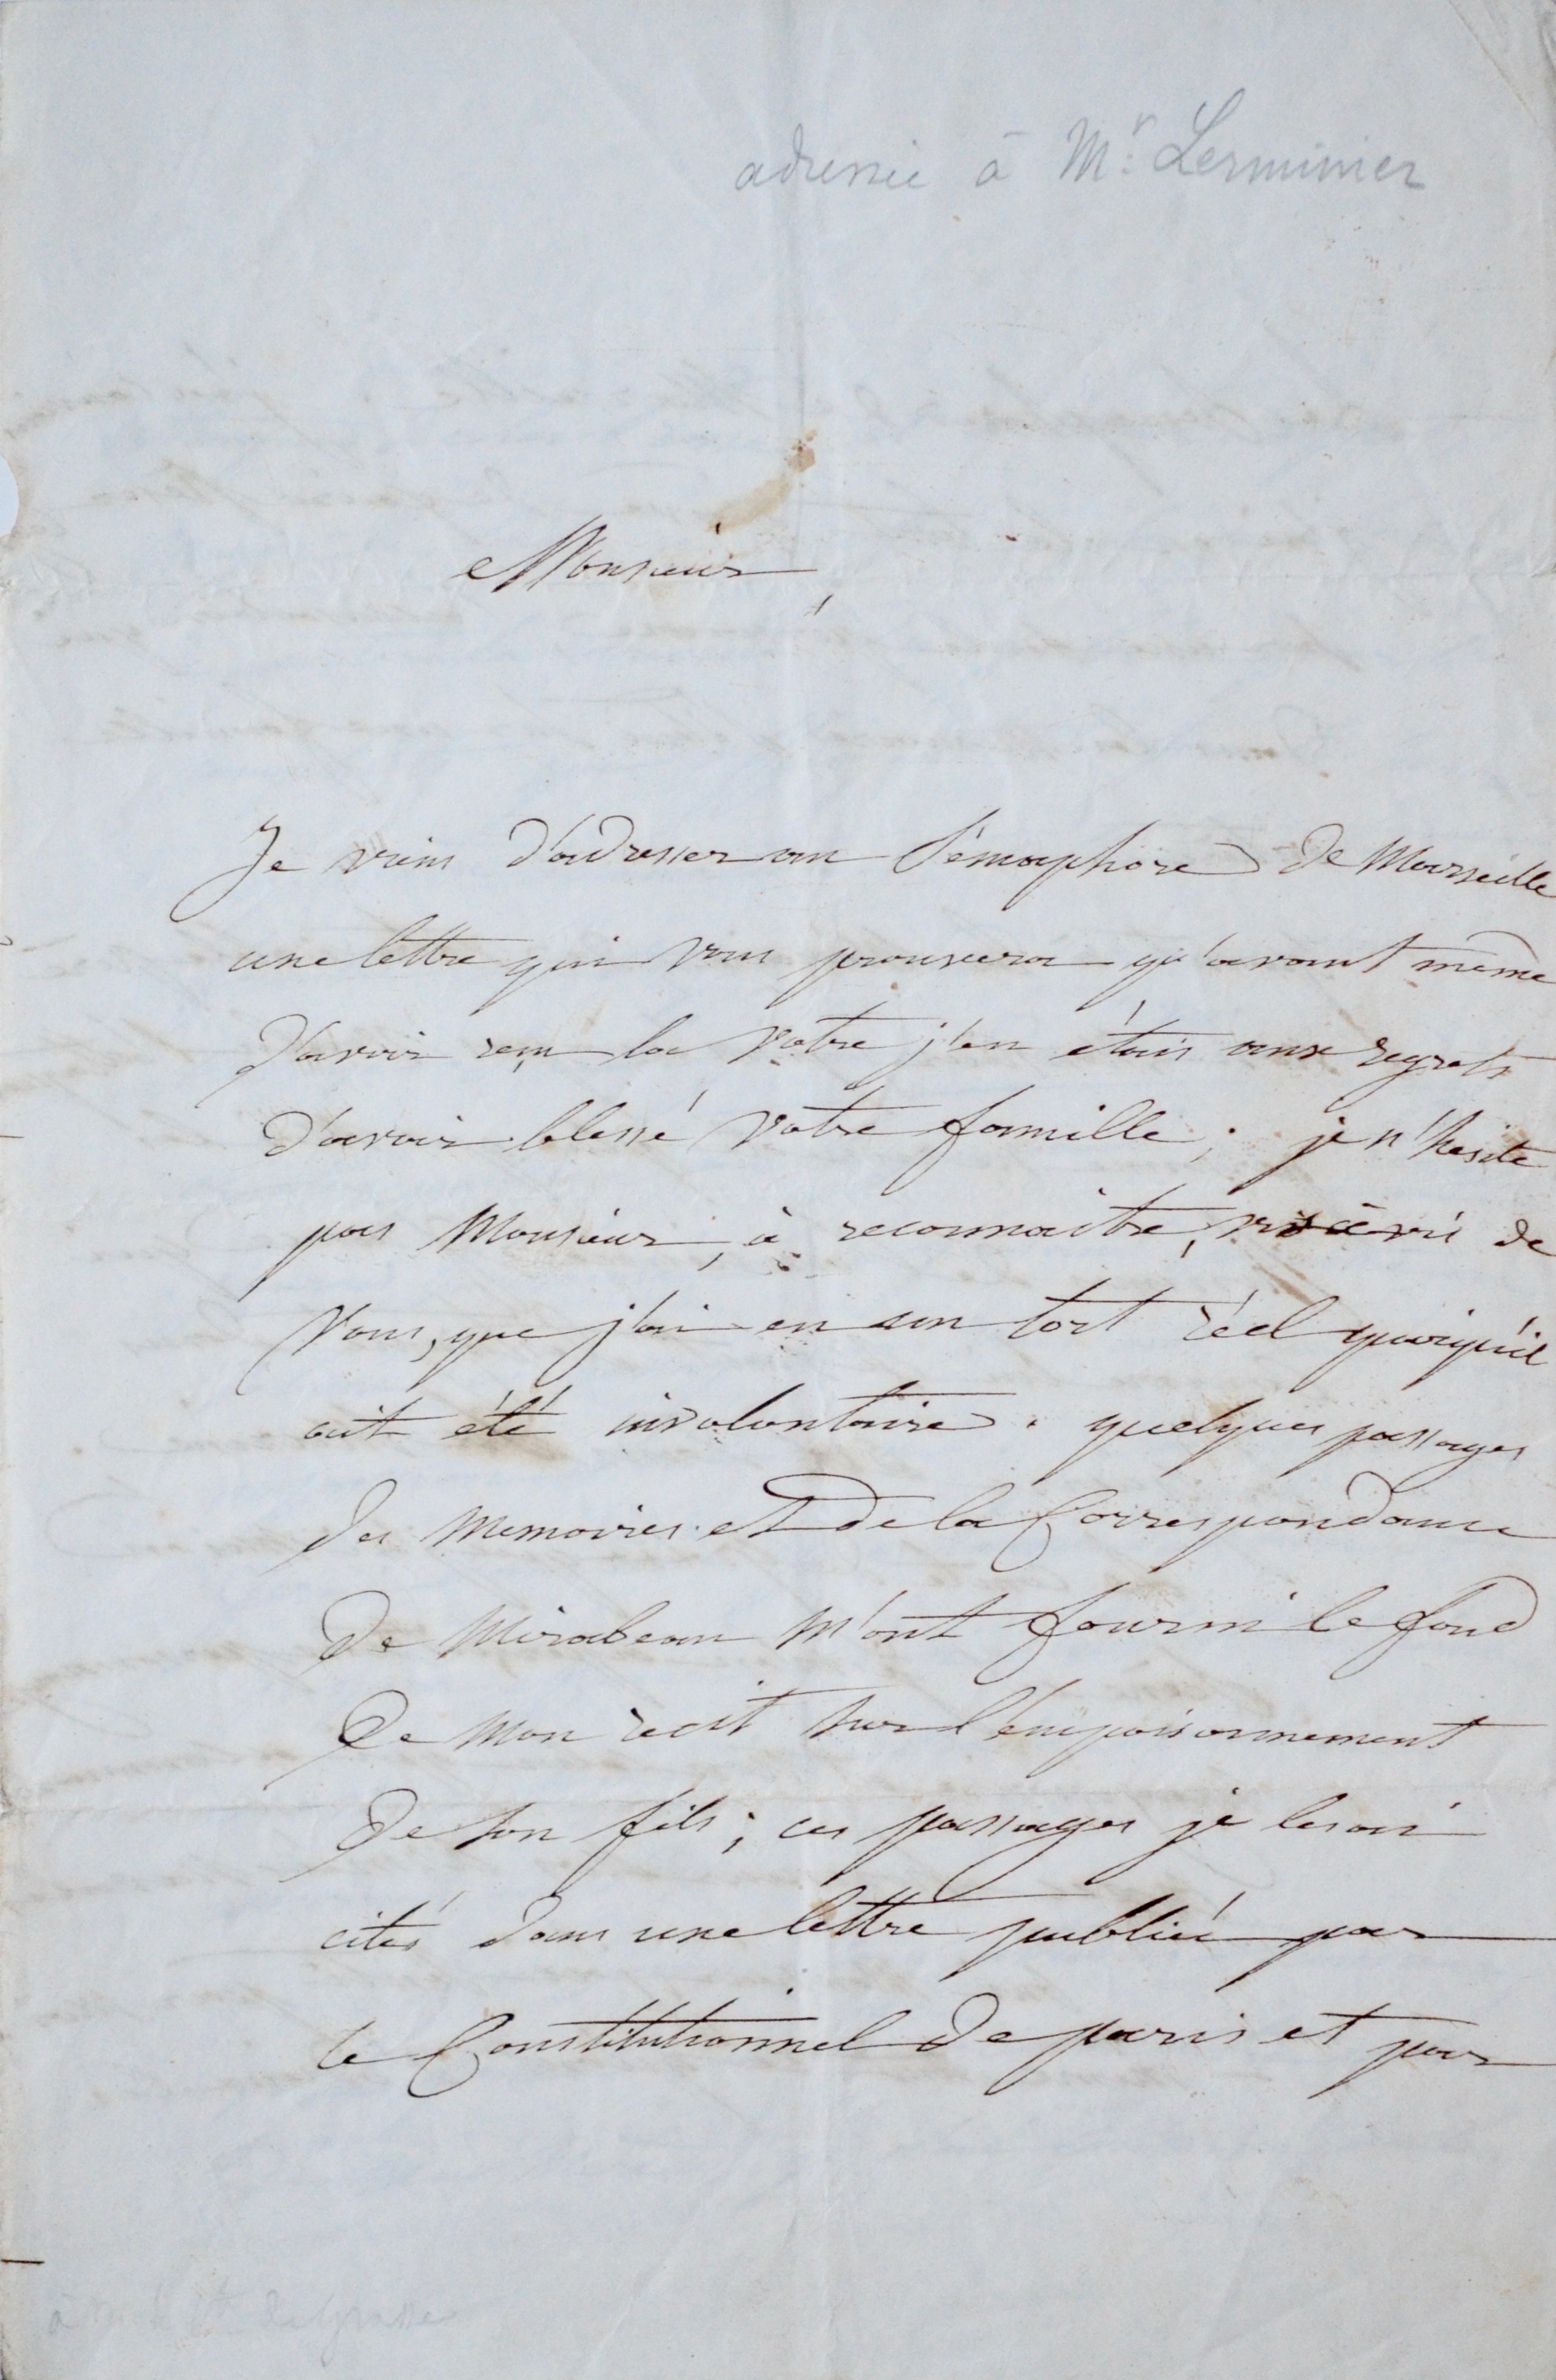 adressée à Mr. Lerminier
Monsieur,
Je viens d'adresser au Sémaphore de Marseille
une lettre qui vous prouvera qu'avant même
d'avoir reçu la votre j'en étais aux regrets
d'avoir blessé votre famille ; je n'hesite
pas Monsieur, à reconnaitre, vis à vis de
vous, que j'ai eu un tort réel quoiqu'il
ait été involontaire . quelques passages
des memoires et de la Correspondance
de Mirabeau m'ont fourni le fond
de mon recit sur l'empoisonnement
de son fils ; ces passages je les ai
cités dans une lettre publiée par
le Constitutionnel de paris et par